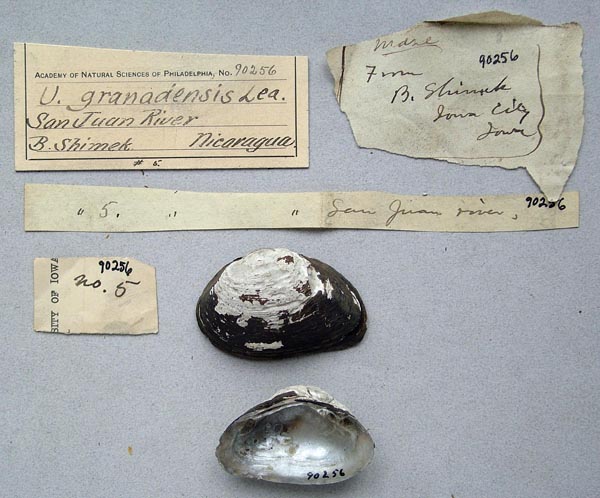 ACADEMY OF NATURAL SCIENCES OF PHILADELPHIA, No. 90256
U. granadensis Lea.
San Juan River
B. Shimek Nicaragua.
# 5
90256
From
B. Shimek
Iowa City
Iowa
" 5. " " San Juan river, 90256
SITY OF IOWA
90256
no. 5
90256